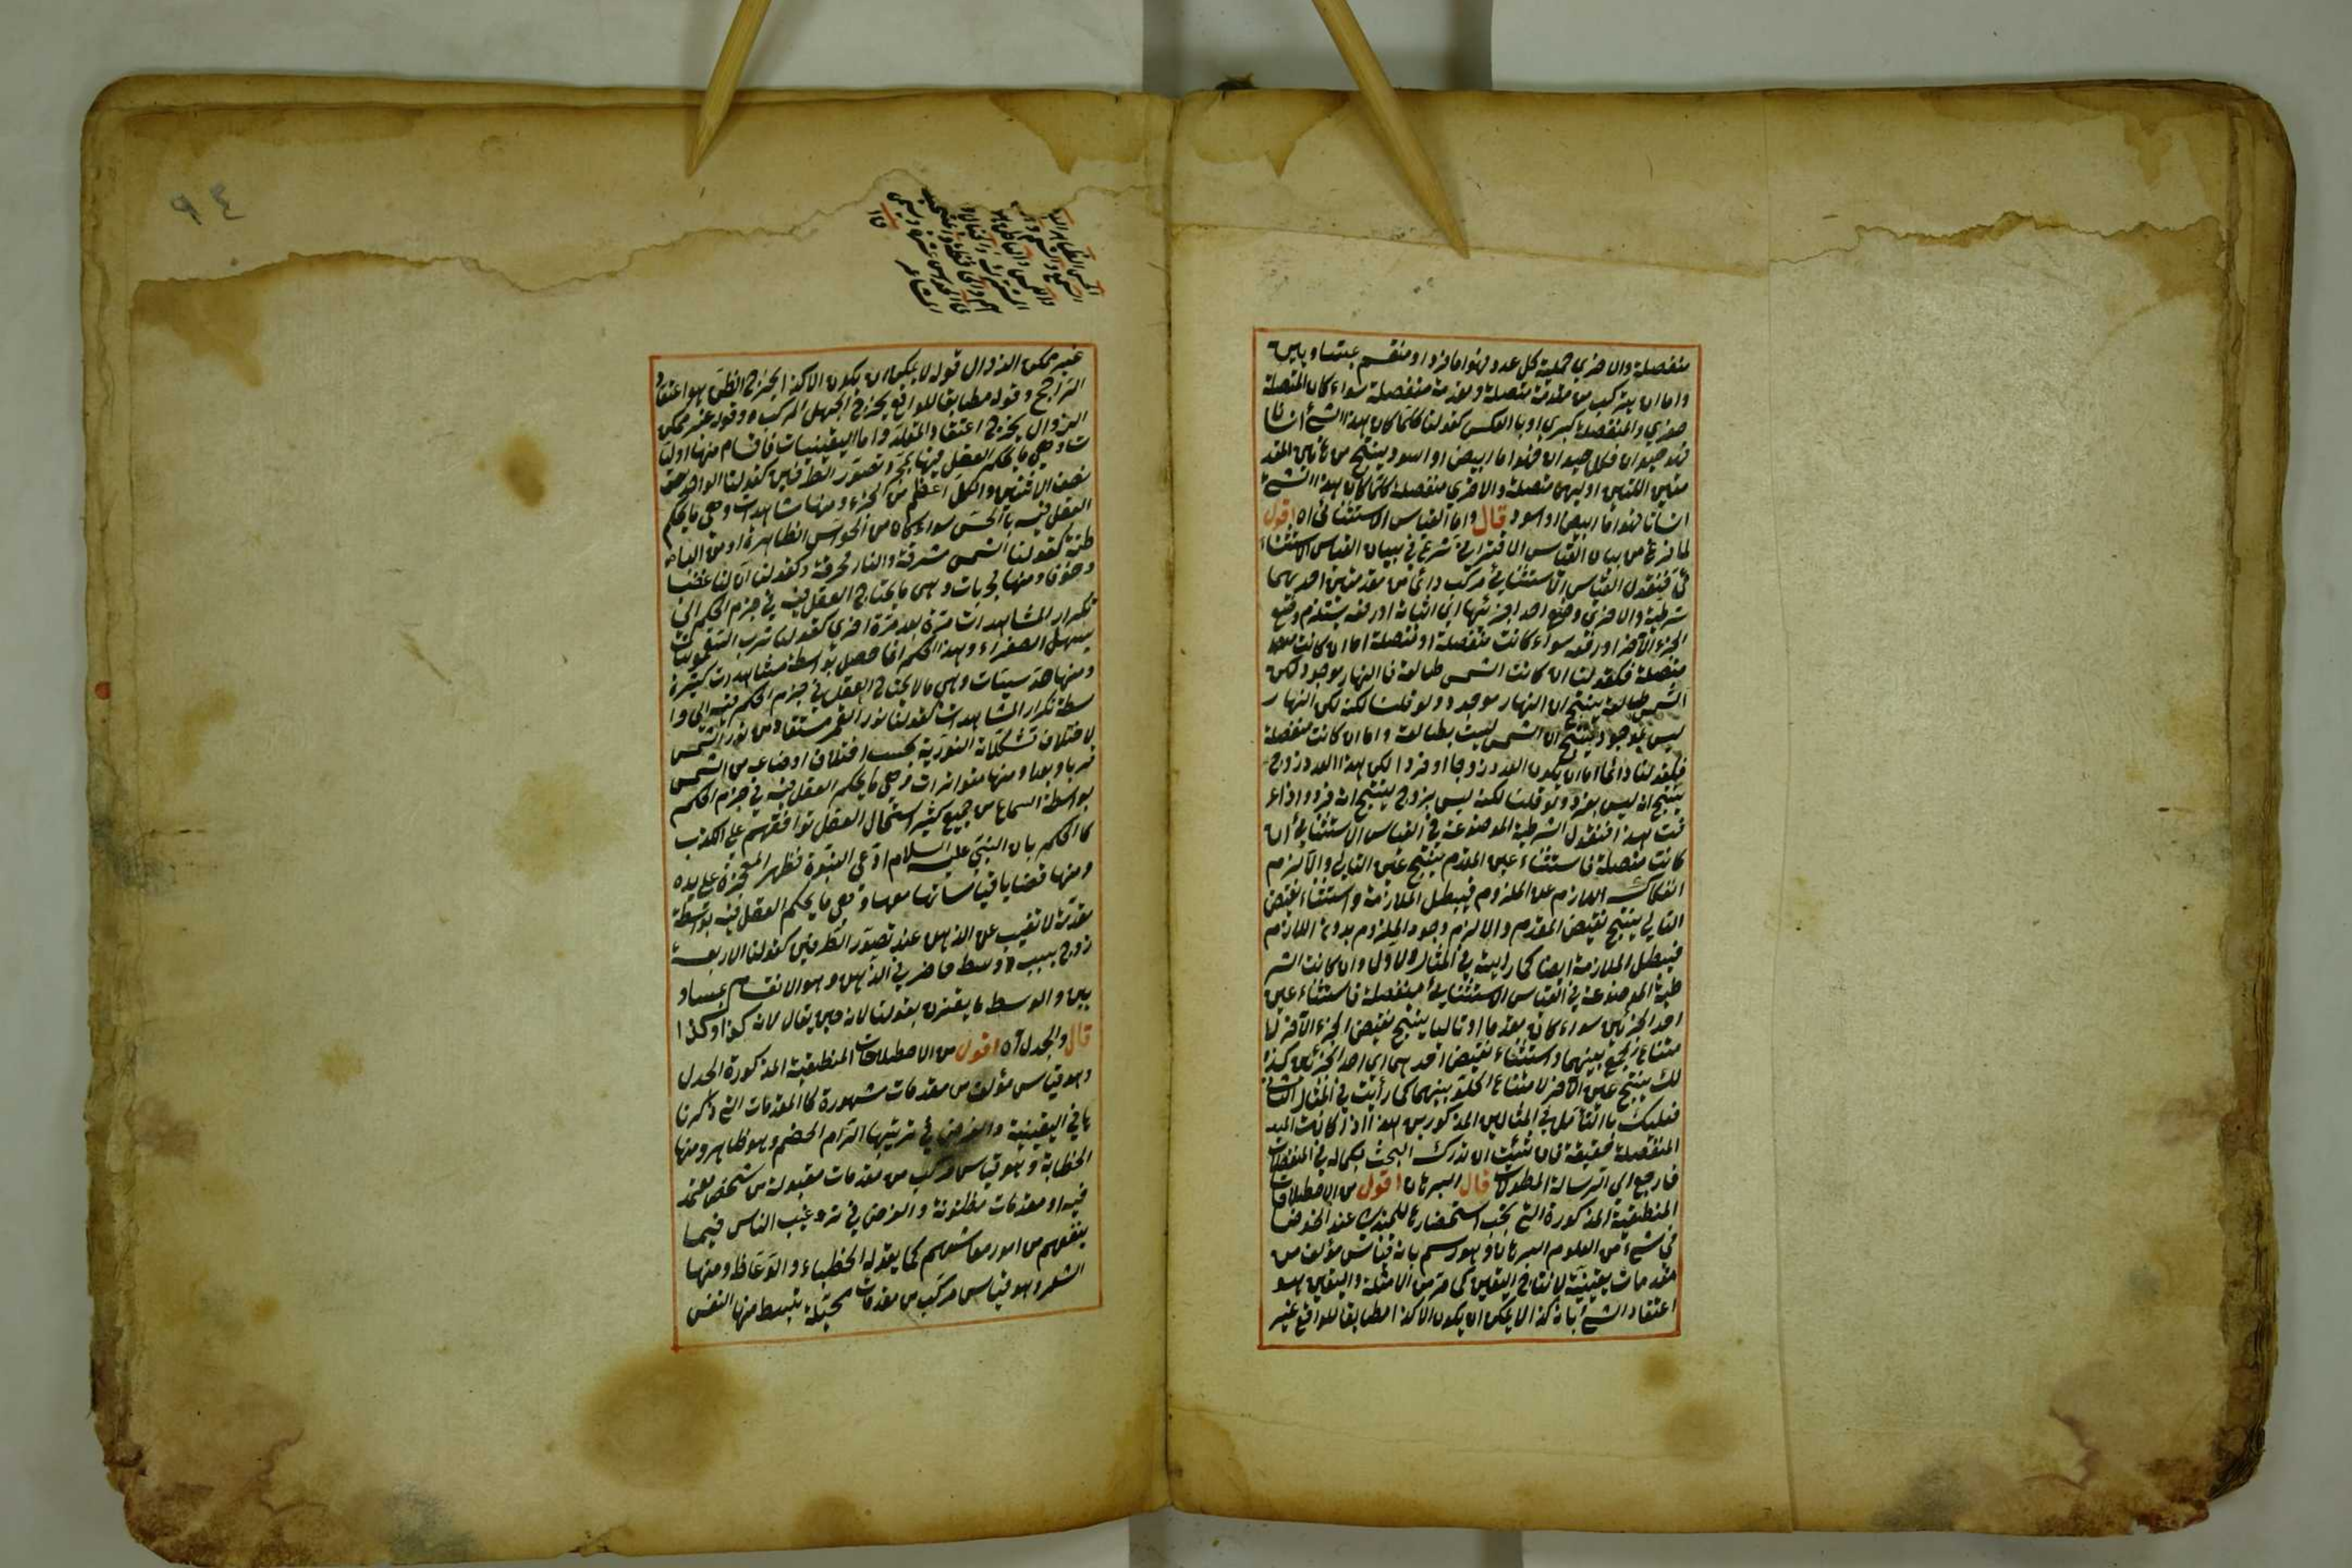 منفصلة والاخري حملية كل عدد فهو اما فرد او منقسم بمتساويين
واما ان يتركب من مقدمة متصلة ومقدمة منفصلة سواء كان المتصلة
صغري والمنفصلة كبري او بالعكس كقولنا كلما كان هذا الشئ انسانا
فهو حيوان فكل حيوان فهو اما ابيض او اسود ينتج من هاتين المقد
متين اللتين اوليهما متصلة والاخري منفصلة كلما كان هذا الشئ
انسانا فهو اما ابيض او اسود قال واما القياس الاستثنائي اه اقول
لما فرغ من بيان القياس الاقتراني شرع في بيان القياس الاستثنا
ئي فنقول القياس الاستثنائي مركب دائما من مقدمتين احديهما
شرطية والاخري وضع احد اجزئيها اي اثباته او رفعه يستلزم وضع
الجزء الآخر او رفعه سواء كانت متصلة او منفصلة اما ان كانت
متصلة فكقولنا ان كانت الشمس طالعة فالنهار موجود لكن
الشمس طالعة ينتج ان النهار موجود ولو قلنا لكنه لكن النهار
ليس بموجود ينتج ان الشمس ليست بطالعة واما ان كانت منفصلة
فكقولنا دائما اما ان يكون العدد زوجا او فردا لكن هذا العدد زوج
ينتج انه ليس بفرد ولو قلنا لكنه ليس بزوج ينتج انه فرد واذا عر
فت هذا فنقول الشرطية الموضوعة في القياس الاستثنائي ان
كانت متصلة فاستثناء عين المقدم ينتج عين التالي والا لزم
انفكاك اللازم عن الملزوم فيبطل الملازمة واستثناء نقيض
التالي ينتج نقيض المقدم والا لزم وجود الملزوم بدون اللازم
فيبطل الملازمة ايضا كما رايته في المثال الاول وان كانت الشر
طية الموضوعة في القياس الاستثنائي منفصلة فاستثناء عين
احد الجزئين سواء كان مقدما او تاليا ينتج نقيض الجزء الآخر لا
متناع الجمع بينهما واستثناء نقيض احدهما اي احد الجزئين كذ
لك ينتج عين الآخر لامتناع الخلو بينهما كما رأيت في المثال الثاني
فعليك بالتأمل في المثالين المذكورين هذا اذا كانت
المنفصلة حقيقة فان شئت ان تدرك البحث بكماله في المنفصلات
فارجع الي الرسالة المطولات قال البرهان اقول من الاصطلاحات
المنطقية المذكورة التي يجب استحضارها للمبتدي عند الخوض
في شئ من العلوم البرهان وهو رسم بانه قياس مؤلف من
مقدمات يقينية لانتاج اليقين كما مر من الامثلة واليقين هو
اعتقاد الشئ بانه كذا لا يمكن ان يكون الا كذا مطابقا للواقع غير
٩٤
غير ممكن الزوال قوله لا يمكن ان يكون الا كذا يخرج الظن هو اعتقاد
الراجح وقوله مطابقا للواقع يخرج الجهل المركب وقوله غير ممكن
الزوال يخرج اعتقاد المقلد واما اليقينيات فاقسام منها اوليا
ت وهي ما يحكم العقل فيها بمجرد تصور الطرفين كقولنا الواحد
نصف الاثنين والكل اعظم من الجزء ومنها مشاهدات وهي ما يحكم
العقل فيه بالحس سواء كان من الحواس الظاهرة او من البا
طنة كقولنا الشمس مشرقة والنار محرقة وكقولنا ان لنا غضبا
وخوفا ومنها مجربات وهي ما يحتاج العقل فيه في جزم الحكم الي
تكرار المشاهدات مرة بعد مرة اخري كقولنا شرب السقمونيا
يسهل الصفراء وهذا الحكم انما حصل بواسطة مشاهدات كثيرة
ومنها حدسيات وهي ما لا يحتاج العقل في جزم الحكم فيه الي وا
سطة تكرار المشاهدات كقولنا نور القمر مستفاد من نور الشمس
لاختلاف تشكلاته النورية بحسب اختلاف اوضاعه من الشمس
قربا وبعدا ومنها متواترات وهي ما يحكم العقل فيه في جزم الحكم
بواسطة السماع من جميع كثير استحال العقل توافقهم علي الكذب
كالحكم بان النبي عليه السلام ادعي النبوة وظهر المعجزة علي يده
ومنها قضايا قياساتها معها وهي ما يحكم العقل فيه بواسطة
مقدمة لا تغيب عن الذهن عند تصور الطرفين كقولنا الاربعة
زوج بسبب وسط حاضر في الذهن وهو الانقسام بمتساو
يين والوسط ما يقترن بقولنا لانه حين يقال لانه كذا وكذا
قال والجدل اه اقول من الاصطلاحات المنطقية المذكورة الجدل
وهو قياس مؤلف من مقدمات مشهورة كالمقدمات التي ذكرنا
ها في اليقينية والغرض في ترتيبها الزام الخصم وهو ظاهر ومنها
الخطابة وهو قياس مركب من مقدمات مقبولة من شخص معتمد
فيه او مقدمات مظنونة والغرض في ترغيب الناس فيما
ينفعهم من امور معاشهم كما يقوله الخطباء والوعاظ ومنها
الشعر وهو قياس مركب من مقدمات مخيلة ينبسط منها النفس